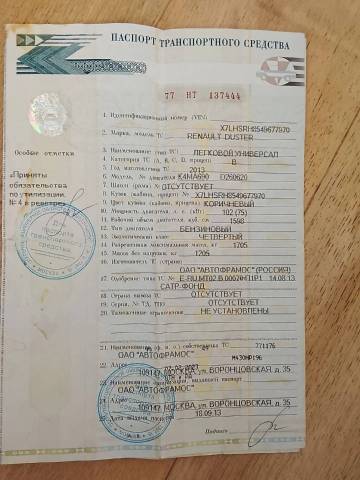 ПАСПОРТ ТРАНСПОРТНОГО СРЕДСТВА
77 НТ 137444
1. Идентификационный номер (VIN) X7LHSRHB549677970
2. Марка, модель ТС RENAULT DUSTER
3. Наименование (тип ТС) ЛЕГКОВОЙ УНИВЕРСАЛ
4. Категория ТС (А, В, С, D, прицеп) В
5. Год изготовления ТС 2013
6. Модель, № двигателя K4MA690 D260620
7. Шасси (рама) № ОТСУТСТВУЕТ
8. Кузов (кабина, прицеп) № X7LHSRHB549677970
9. Цвет кузова (кабины, прицепа) КОРИЧНЕВЫЙ
10. Мощность двигателя, л. с. (кВт) 102 (75)
11. Рабочий объем двигателя, куб. см 1598
12. Тип двигателя БЕНЗИНОВЫЙ
13. Экологический класс ЧЕТВЕРТЫЙ
14. Разрешенная максимальная масса, кг 1705
15. Масса без нагрузки, кг
16. Изготовитель ТС (страна)
ОАО "АВТОФРАМОС" (РОССИЯ)
17. Одобрение типа ТС № 14.08.13
САТР-ФОНД
18. Страна вывоза ТС ОТСУТСТВУЕТ
19. Серия, № ТД, ТПО ОТСУТСТВУЕТ
20. Таможенные ограничения НЕ УСТАНОВЛЕНЫ
21. Наименование (ф. и. о.) собственника ТС 771176
ОАО "АВТОФРАМОС"
22. Адрес
109147, МОСКВА, ул. ВОРОНЦОВСКАЯ, д. 35
23. Наименование организации, выдавшей паспорт
ОАО "АВТОФРАМОС"
24. Адрес
109147, МОСКВА, ул. ВОРОНЦОВСКАЯ, д. 35
25. Дата выдачи паспорта 18.09.13
Подпись
Особые отметки
«Приняты
обязательства
по утилизации.
№ 4 в реестре»
Для
паспорта
транспортного
средства